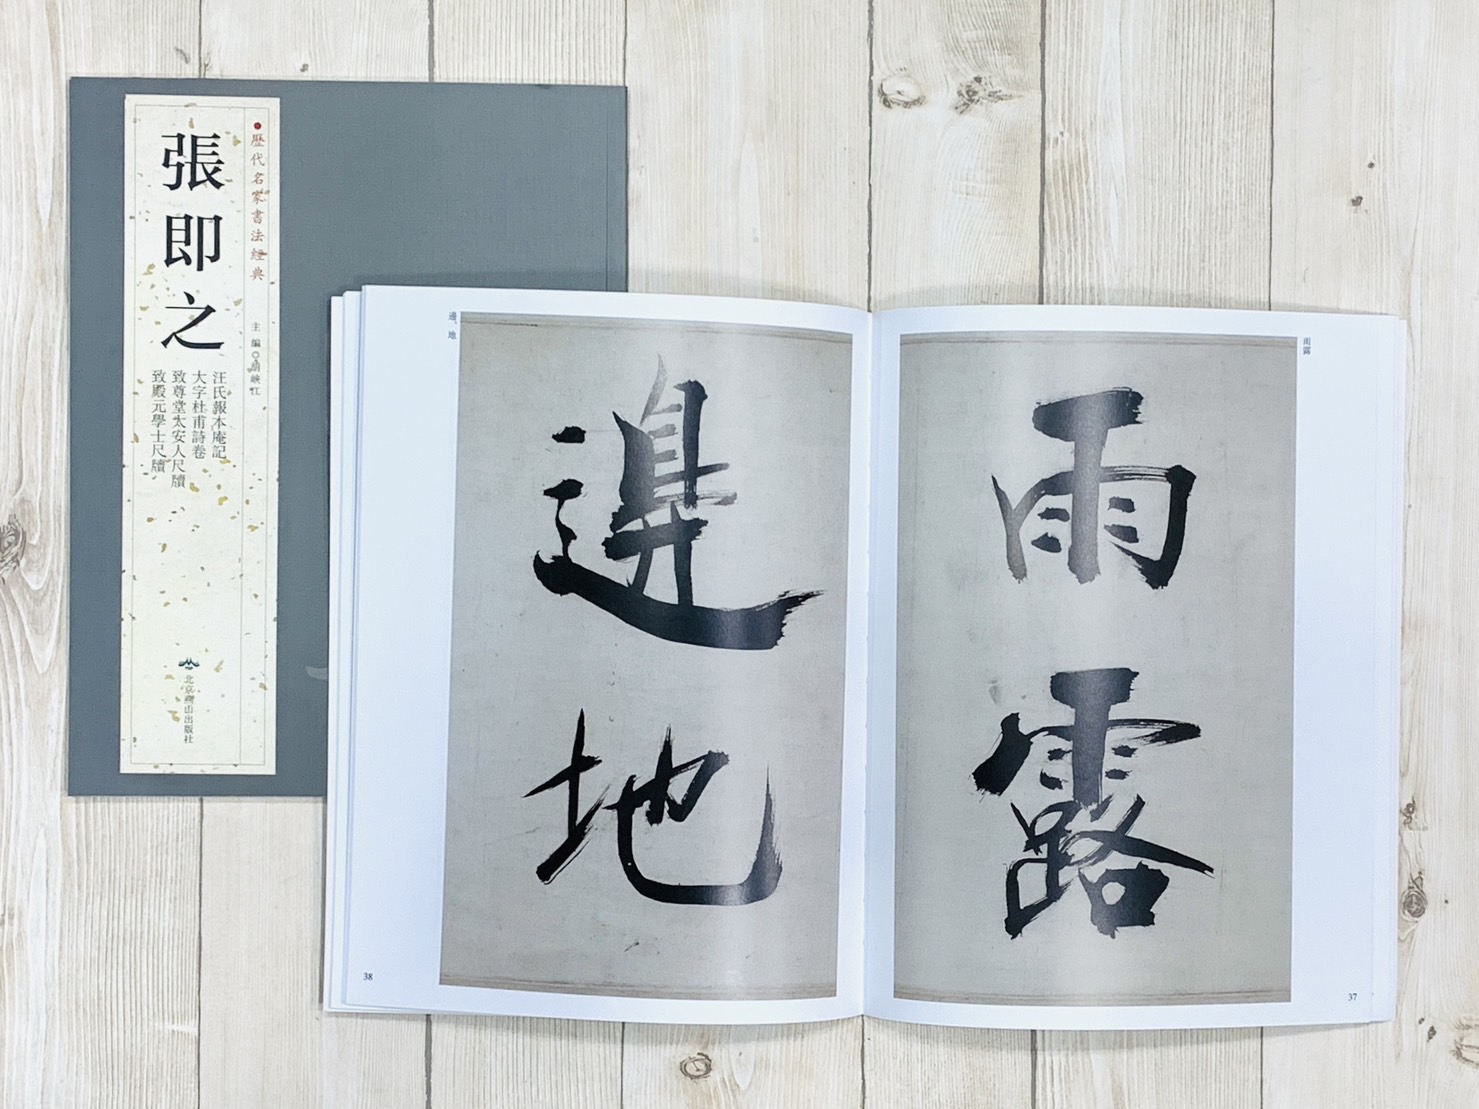 歴代名家書法經典
主編◎胡峽江
張即之
汪氏報本庵記
大字杜甫詩卷
致尊堂太安人尺牘
致殿元學士尺牘
北京燕山出版社
雨露
雨露
37
邊、地
邊地
38